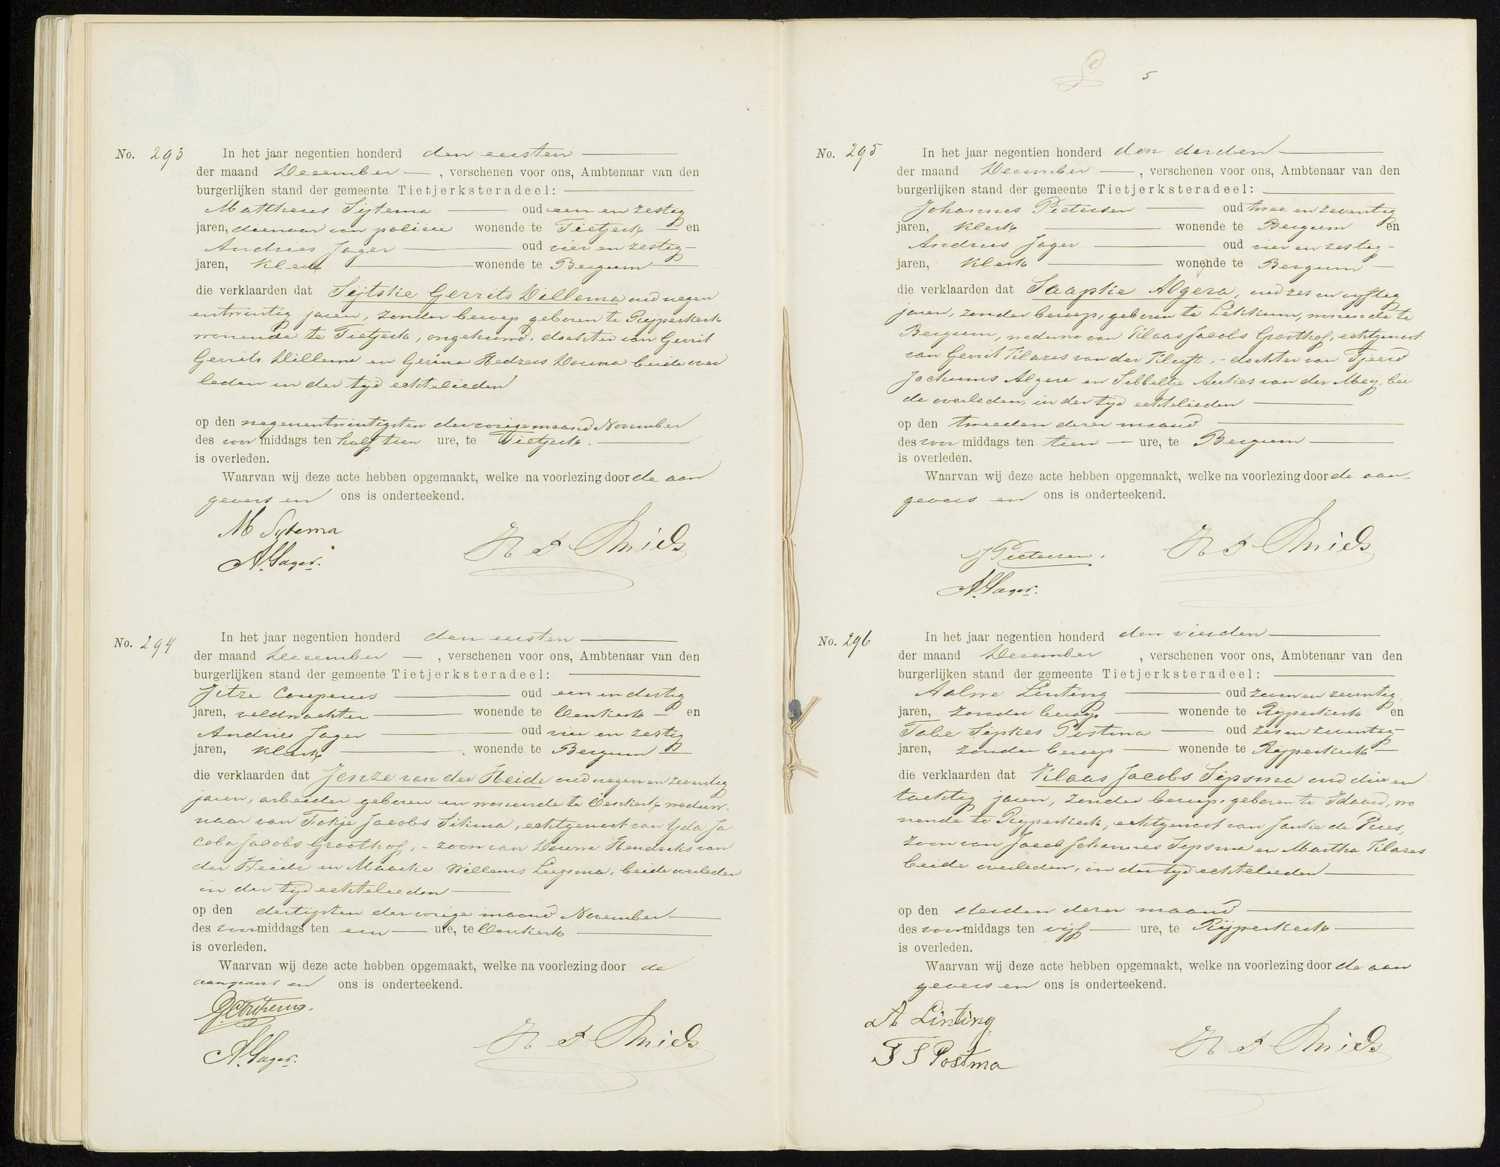 No. 293 In het jaar negentien honderd den eersten
der maand December, verschenen voor ons, Ambtenaar van den
burgerlijken stand der gemeente Tietjerksteradeel:
Mattheus Sijtema oud een en zestig
jaren, dienaar van politie wonende te Tietjerk en
Andries Jager oud vier en zestig
jaren, klerk wonende te Bergum
die verklaarden dat Sijtske Gerrits Willema oud negen
entwintig jaren, zonder beroep geboren te Rijperkerk
wonende te Tietjerk, ongehuwd, dochter van Gerrit
Gerrits Willema en Douma beide over
leden in der tijd echtelieden
op den negenentwintigsten der vorige maand November
des voor middags ten half tien ure, te Tietjerk.
is overleden.
Waarvan wij deze acte hebben opgemaakt, welke na voorlezing door de aan
gevers en ons is onderteekend.
M Sytema
A. Jager.
No. 294 In het jaar negentien honderd den eersten
der maand December, verschenen voor ons, Ambtenaar van den
burgerlijken stand der gemeente Tietjerksteradeel:
Jitze Couperus oud een en dertig
jaren, veldwachter wonende te Oenkerk en
Andries Jager oud vier en zestig
jaren, klerk, wonende te Bergum
die verklaarden dat Jenze van der Heide oud negen en zeventig
jaren, arbeider geboren en wonende te Oenkerk, weduw-
naar van Fokje Jacobs Sikma, echtgenoot van Yda Ja
cobs Jacobs Groothof, - zoon van Douwe Hendriks van
der Heide en Maaike Willems Liepsma, beide overleden
in der tijd echtelieden
op den dertigsten der vorige maand November
des voormiddags ten een ure, te Oenkerk
is overleden.
Waarvan wij deze acte hebben opgemaakt, welke na voorlezing door de
aangevers en ons is onderteekend.
J Couperus.
A. Jager.
5
No. 295 In het jaar negentien honderd den derden
der maand December, verschenen voor ons, Ambtenaar van den
burgerlijken stand der gemeente Tietjerksteradeel:
Johannes Pietersen oud twee en zeventig
jaren, klerk wonende te Bergum en
Andries Jager oud vier en zestig
jaren, klerk wonende te Bergum
die verklaarden dat Saapke Algera, oud zes en vijftig
jaren, zonder beroep, geboren te Lekkum, wonende te
Bergum, weduwe van Klaas Jacobs Groothof, echtgenoot
van Gerrit Klazes van der Kleijt, - dochter van Tjeerd
Jochums Algera en Sibbeltje Ankes van der Meij, bei
de overleden, in der tijd echtelieden
op den tweeden dezer maand
des voor middags ten tien ure, te Bergum
is overleden.
Waarvan wij deze acte hebben opgemaakt, welke na voorlezing door de aan-
gevers en ons is onderteekend.
J Pietersen.
A. Jager.
No. 296 In het jaar negentien honderd den vierden
der maand December, verschenen voor ons, Ambtenaar van den
burgerlijken stand der gemeente Tietjerksteradeel:
Aalwe Linting oud zeven en zeventig
jaren, zonder beroep wonende te Rijperkerk en
Tabe Sepkes Postma oud zes en zeventig
jaren, zonder beroep wonende te Rijperkerk
die verklaarden dat Klaas Jacobs Sipsma oud drie en
tachtig jaren, zonder beroep, geboren te Idaard, wo
nende te Rijperkerk, echtgenoot van Jantje de Vries,
zoon van Jacob Johannes Sipsma en Martha Klazes
beide overleden, in der tijd echtelieden
op den derden dezer maand
des voormiddags ten vijf ure, te Rijperkerk
is overleden.
Waarvan wij deze acte hebben opgemaakt, welke na voorlezing door de aan
gevers en ons is onderteekend.
A Linting
T S Postma